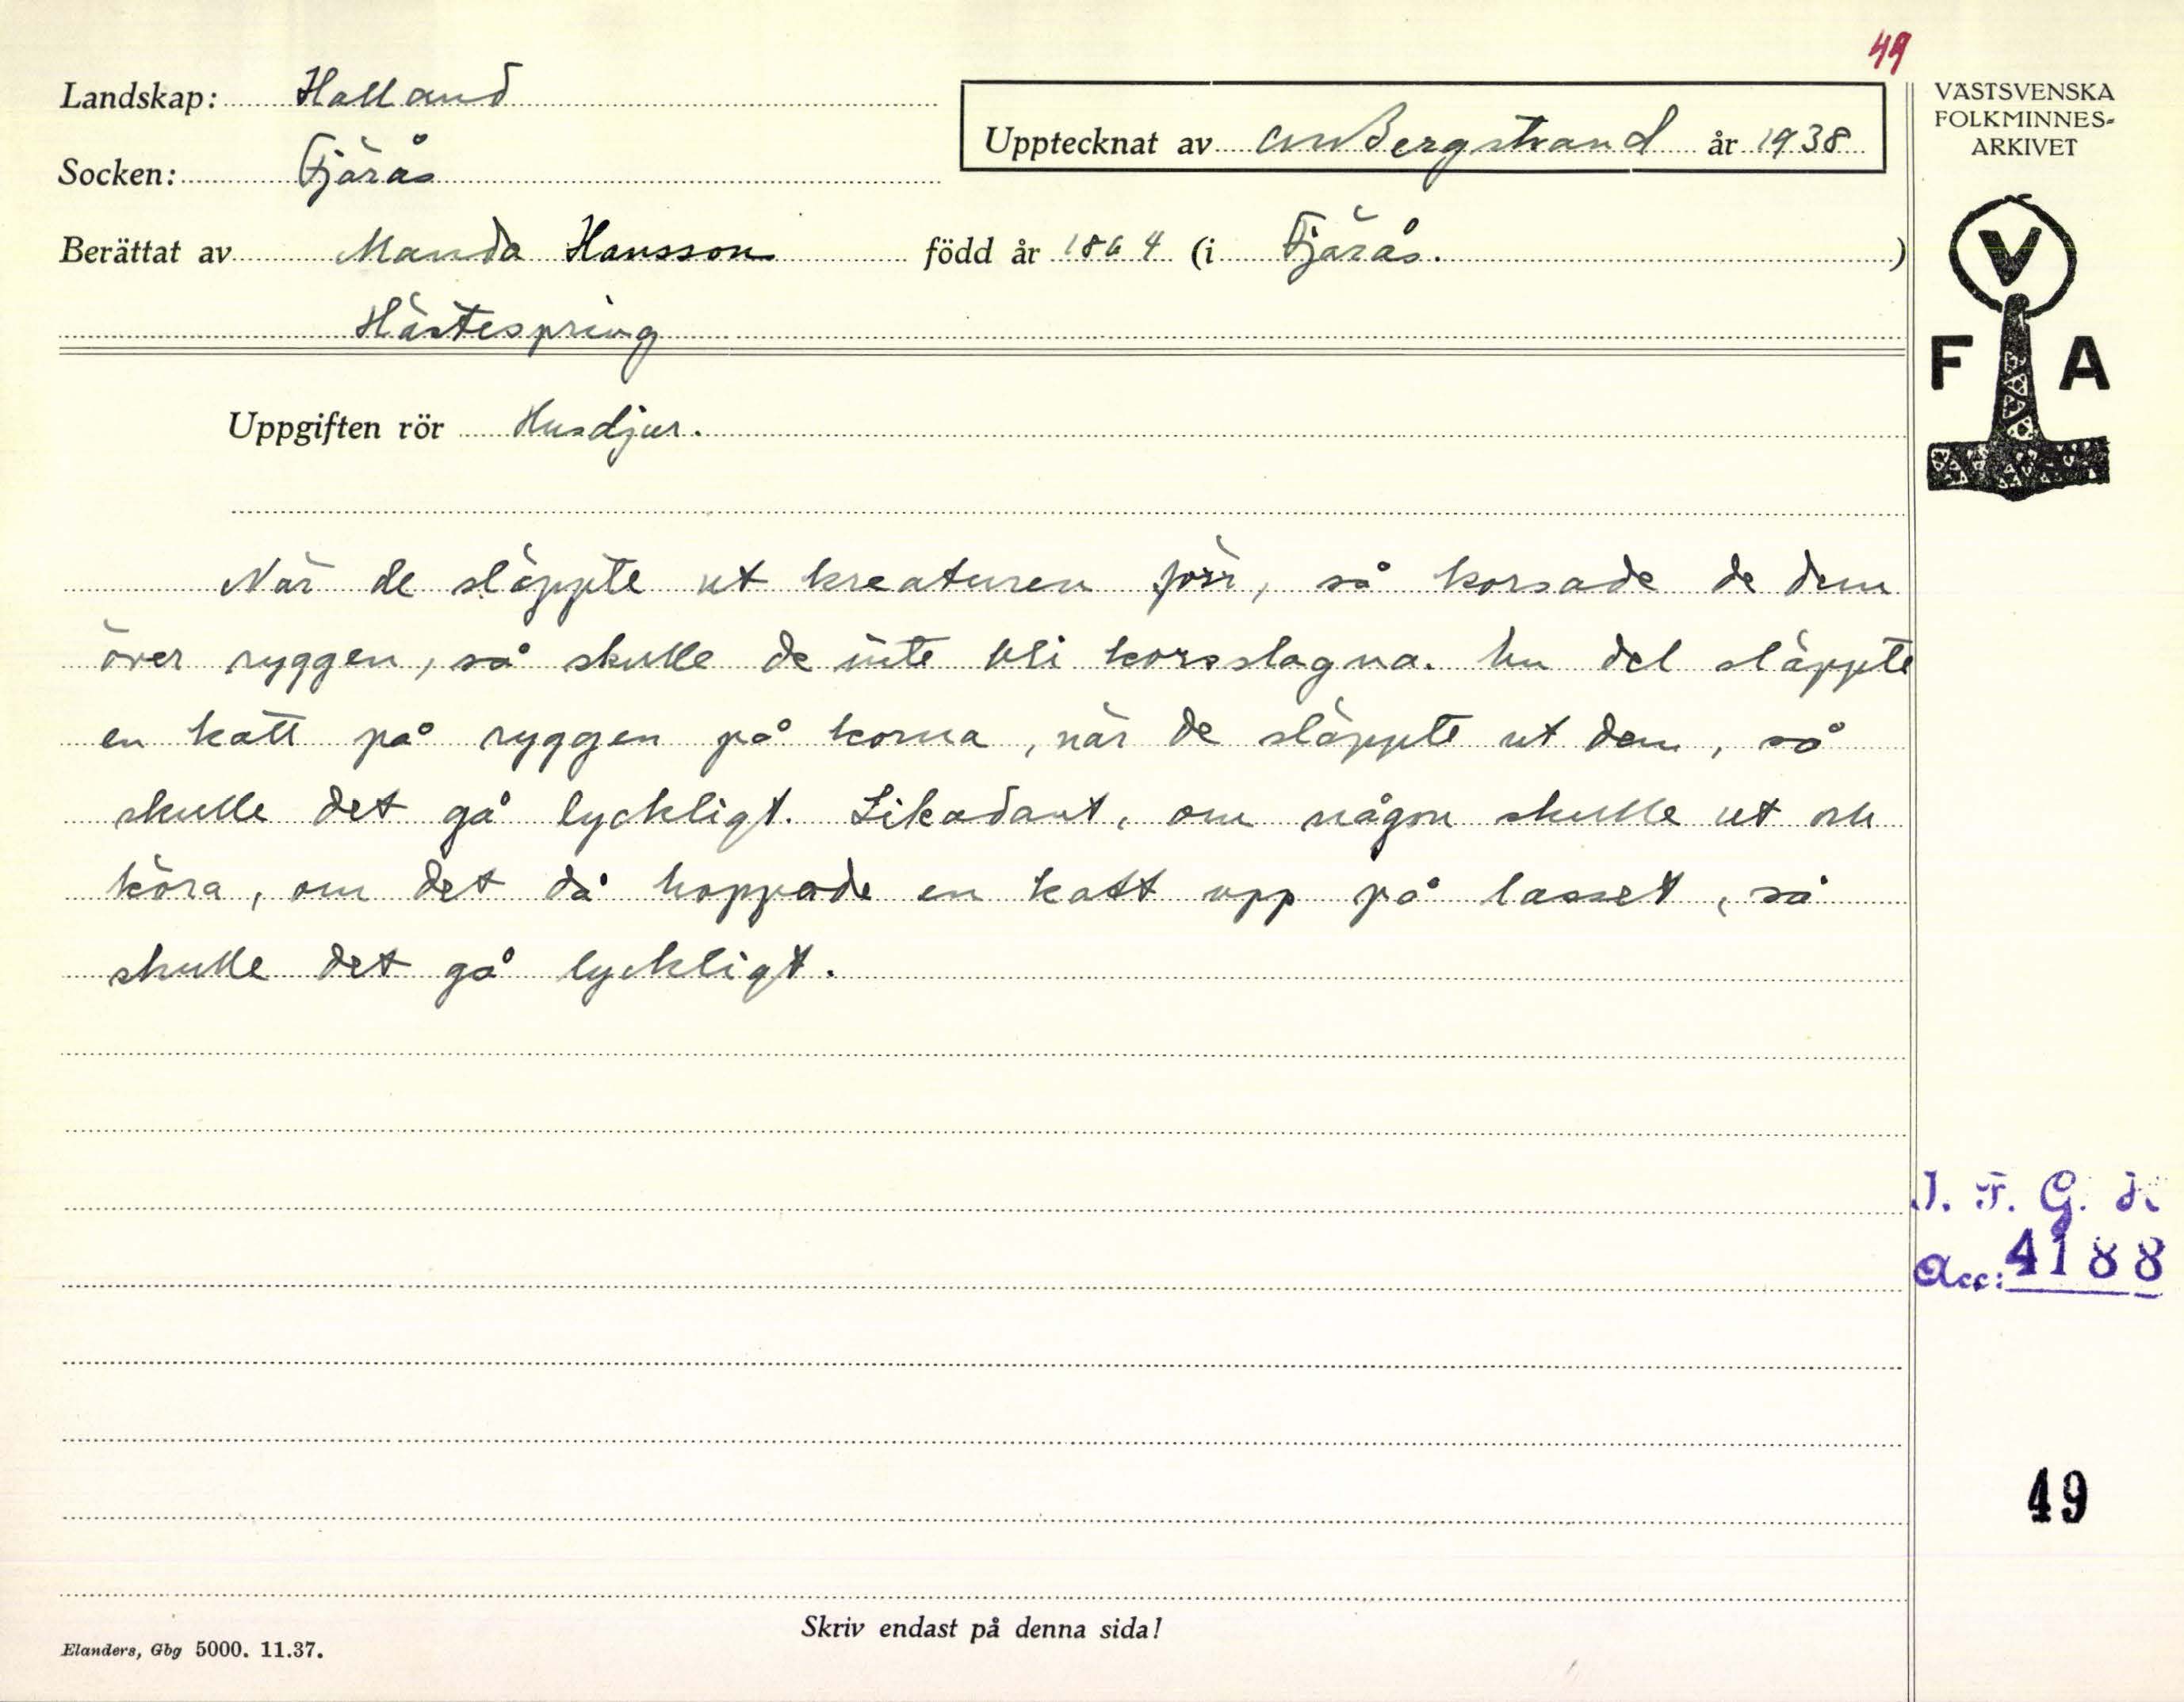 49
Landskap: Halland
Socken: Fjärås
Upptecknat av CMBergstrand år 1938
VÄSTSVENSKA
FOLKMINNES-
ARKIVET
Berättat av Manda Hansson född år 1864 (i Fjärås.)
Hästespring
V
F A
Uppgiften rör Husdjur.
När de släppte ut kreaturen förr, så korsade de dem
över ryggen, så skulle de inte bli korsslagna. En del släppte
en katt på ryggen på korna, när de släppte ut dem, så
skulle det gå lyckligt. Likadant, om någon skulle ut och
köra, om det då hoppade en katt upp på lasset, så
skulle det gå lyckligt.
I. F. G. H.
Acc: 4188
49
Skriv endast på denna sida!
Elanders, Gbg 5000. 11.37.